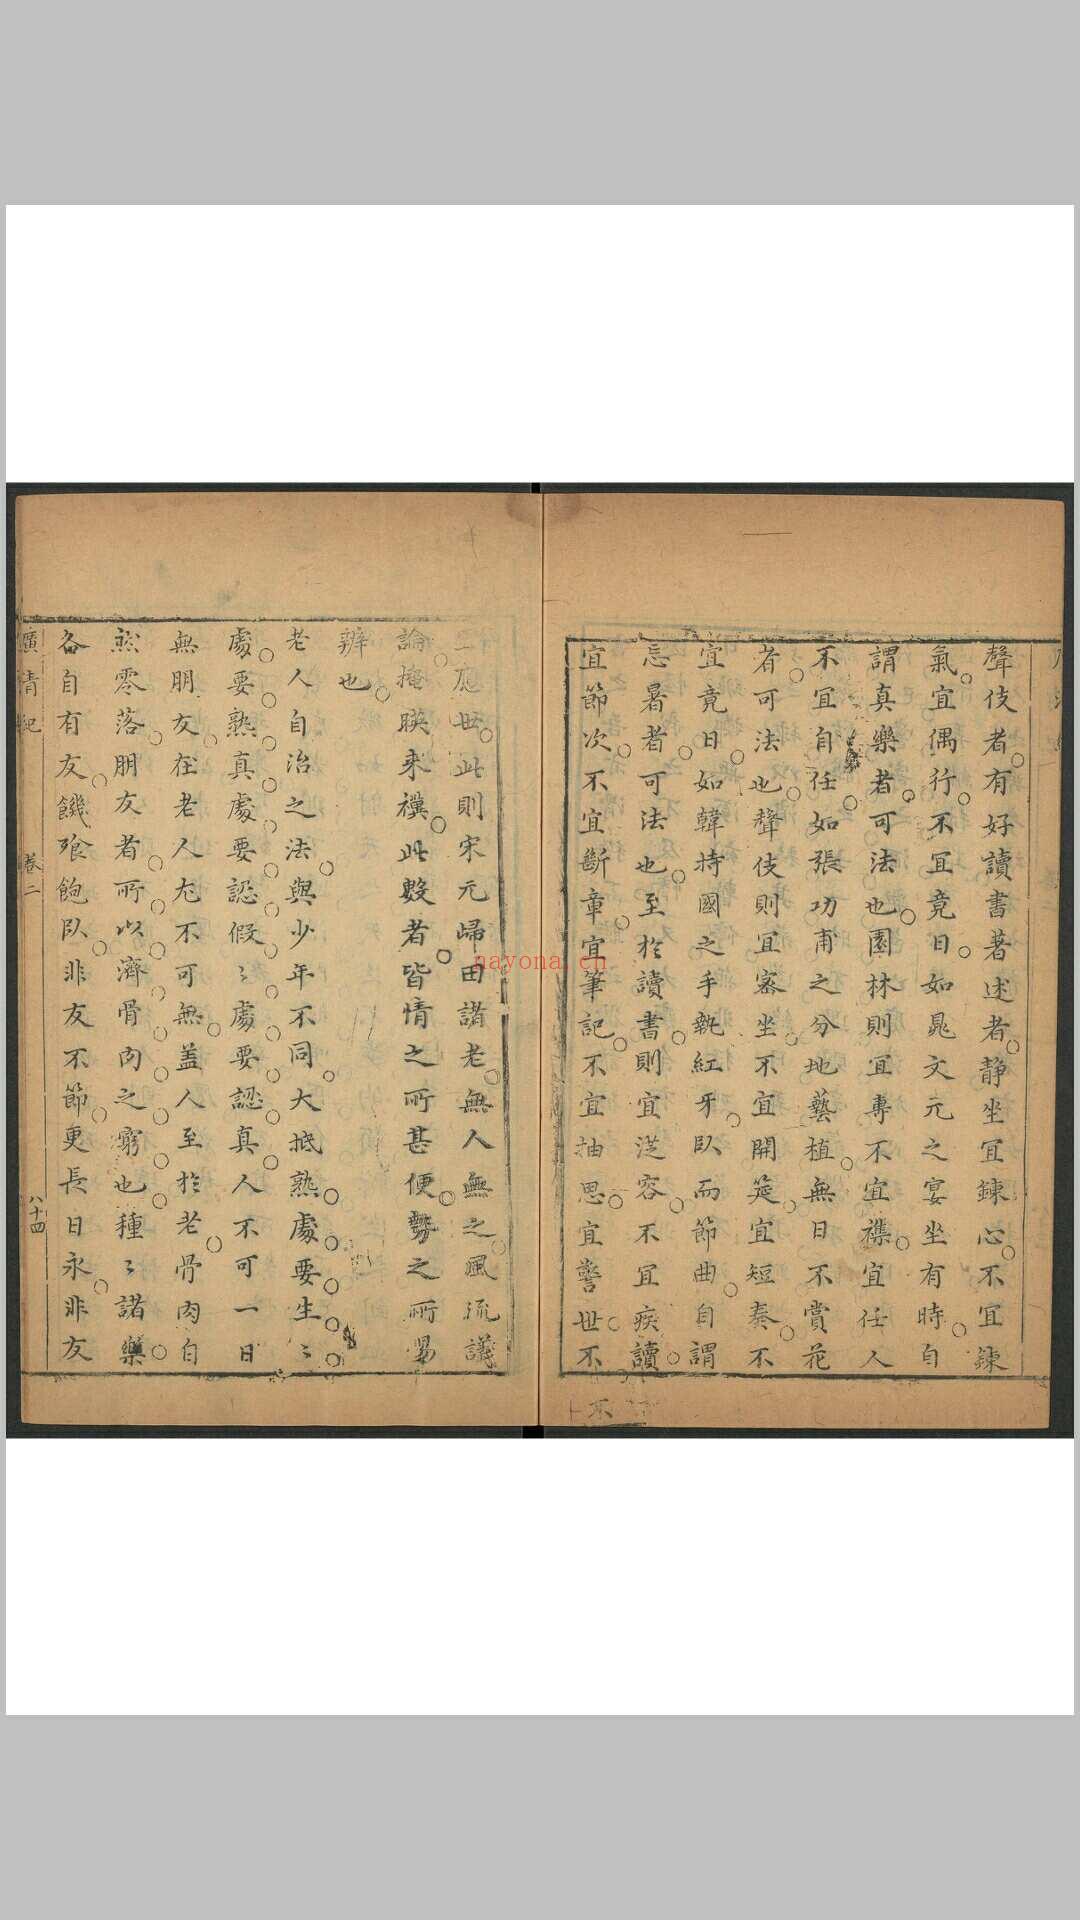 聲伎者有好讀書著述者静坐宜鍊心不宜鍊
氣宜偶行不宜竟日如晁文元之宴坐有時自
謂真樂者可法也園林則宜專不宜襍宜任人
不宜自任如張功甫之分地藝植無日不賞花
者可法也聲伎則宜密坐不宜開筵宜短奏不
宜竟日如韓持國之手執紅牙臥而節曲自謂
忘暑者可法也至於讀書則宜従容不宜疾讀
宜節次不宜斷章宜筆記不宜抽思宜警世不
不
應世此則宋元歸田諸老無人無之風流議
論掩暎来禩此數者皆情之所甚便勢之所易
辦也
老人自治之法與少年不同大抵熟處要生生
處要熟真處要認假假處要認真人不可一日
無朋友在老人尤不可無盖人至於老骨肉自
然零落朋友者所以濟骨肉之窮也種種諸樂
各自有友饑飱飽臥非友不節更長日永非友
廣情紀
卷二
八十四
nayona.cn